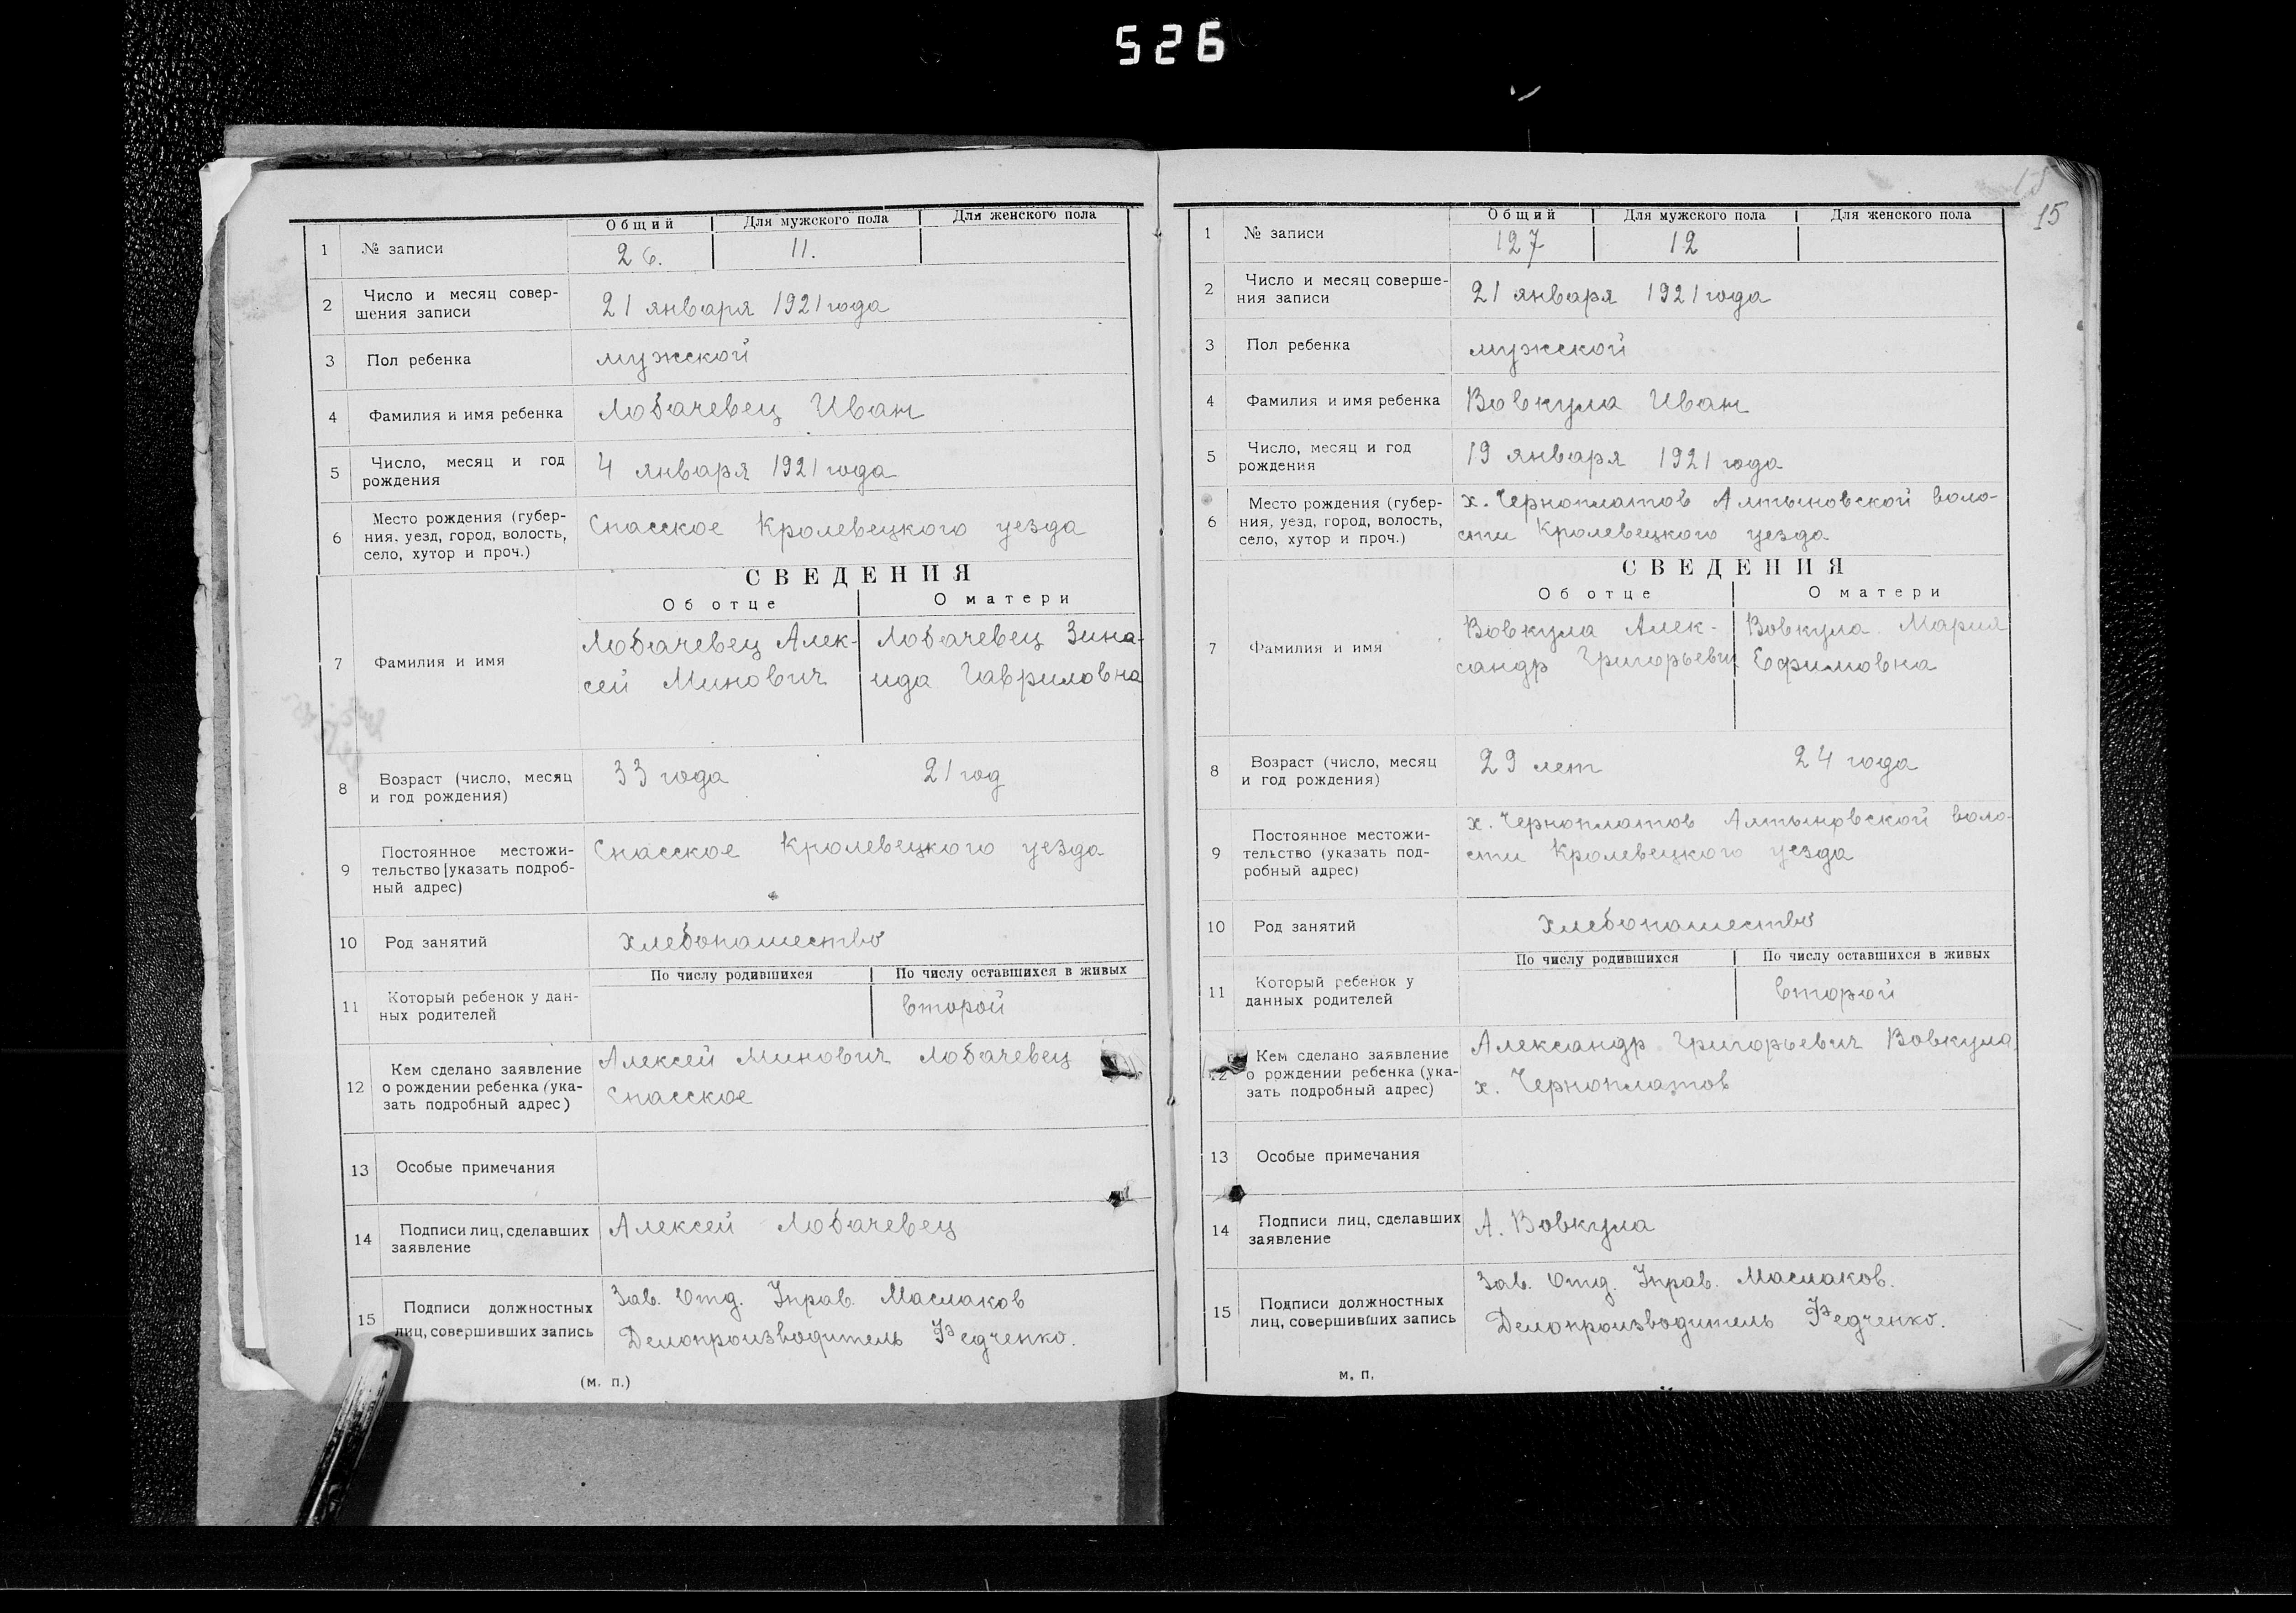 526
Общий Для мужского пола Для женского пола
1 № записи 26. 11.
2 Число и месяц совер-
шения записи
21 января 1921 года
3 Пол ребенка мужской
4 Фамилия и имя ребенка Лобачевец Иван
5 Число, месяц и год
рождения
4 января 1921 года
6 Место рождения (губер-
ния, уезд, город, волость,
село, хутор и проч.)
Спасское Кролевецкого уезда
СВЕДЕНИЯ
Об отце О матери
7 Фамилия и имя
Лобачевец Алек-
сей Минович
Лобачевец Зина-
ида Гавриловна
8 Возраст (число, месяц
и год рождения)
33 года 21 год
9 Постоянное местожи-
тельство [указать подроб-
ный адрес)
Спасское Кролевецкого уезда
10 Род занятий хлебопашество
По числу родившихся По числу оставшихся в живых
11 Который ребенок у дан-
ных родителей
второй
12 Кем сделано заявление
о рождении ребенка (ука-
зать подробный адрес)
Алексей Минович Лобачевец
Спасское
13 Особые примечания
14 Подписи лиц, сделавших
заявление
Алексей Лобачевец
15 Подписи должностных
лиц, совершивших запись
Зав. Отд. Управ. Маслаков
Делопроизводитель Федченко.
(м. п.)
15
15
Общий Для мужского пола Для женского пола
1 № записи 127 12
2 Число и месяц соверше-
ния записи
21 января 1921 года
3 Пол ребенка мужской
4 Фамилия и имя ребенка Вовкула Иван
5 Число, месяц и год
рождения
19 января 1921 года
6 Место рождения (губер-
ния, уезд, город, волость,
село, хутор и проч.)
х. Черноплатов Алтыновской воло-
сти Кролевецкого уезда
СВЕДЕНИЯ
Об отце О матери
7 Фамилия и имя
Вовкула Алек-
сандр Григорьевич
Вовкула Мария
Ефимовна
8 Возраст (число, месяц
и год рождения)
29 лет 24 года
9 Постоянное местожи-
тельство (указать под-
робный адрес)
х. Черноплатов Алтыновской воло-
сти Кролевецкого уезда
10 Род занятий хлебопашество
По числу родившихся По числу оставшихся в живых
11 Который ребенок у
данных родителей
второй
12 Кем сделано заявление
о рождении ребенка (ука-
зать подробный адрес)
Александр Григорьевич Вовкула
х. Черноплатов
13 Особые примечания
14 Подписи лиц, сделавших
заявление
А. Вовкула
15 Подписи должностных
лиц, совершивших запись
Зав. Отд. Управ. Маслаков.
Делопроизводитель Федченко.
м. п.